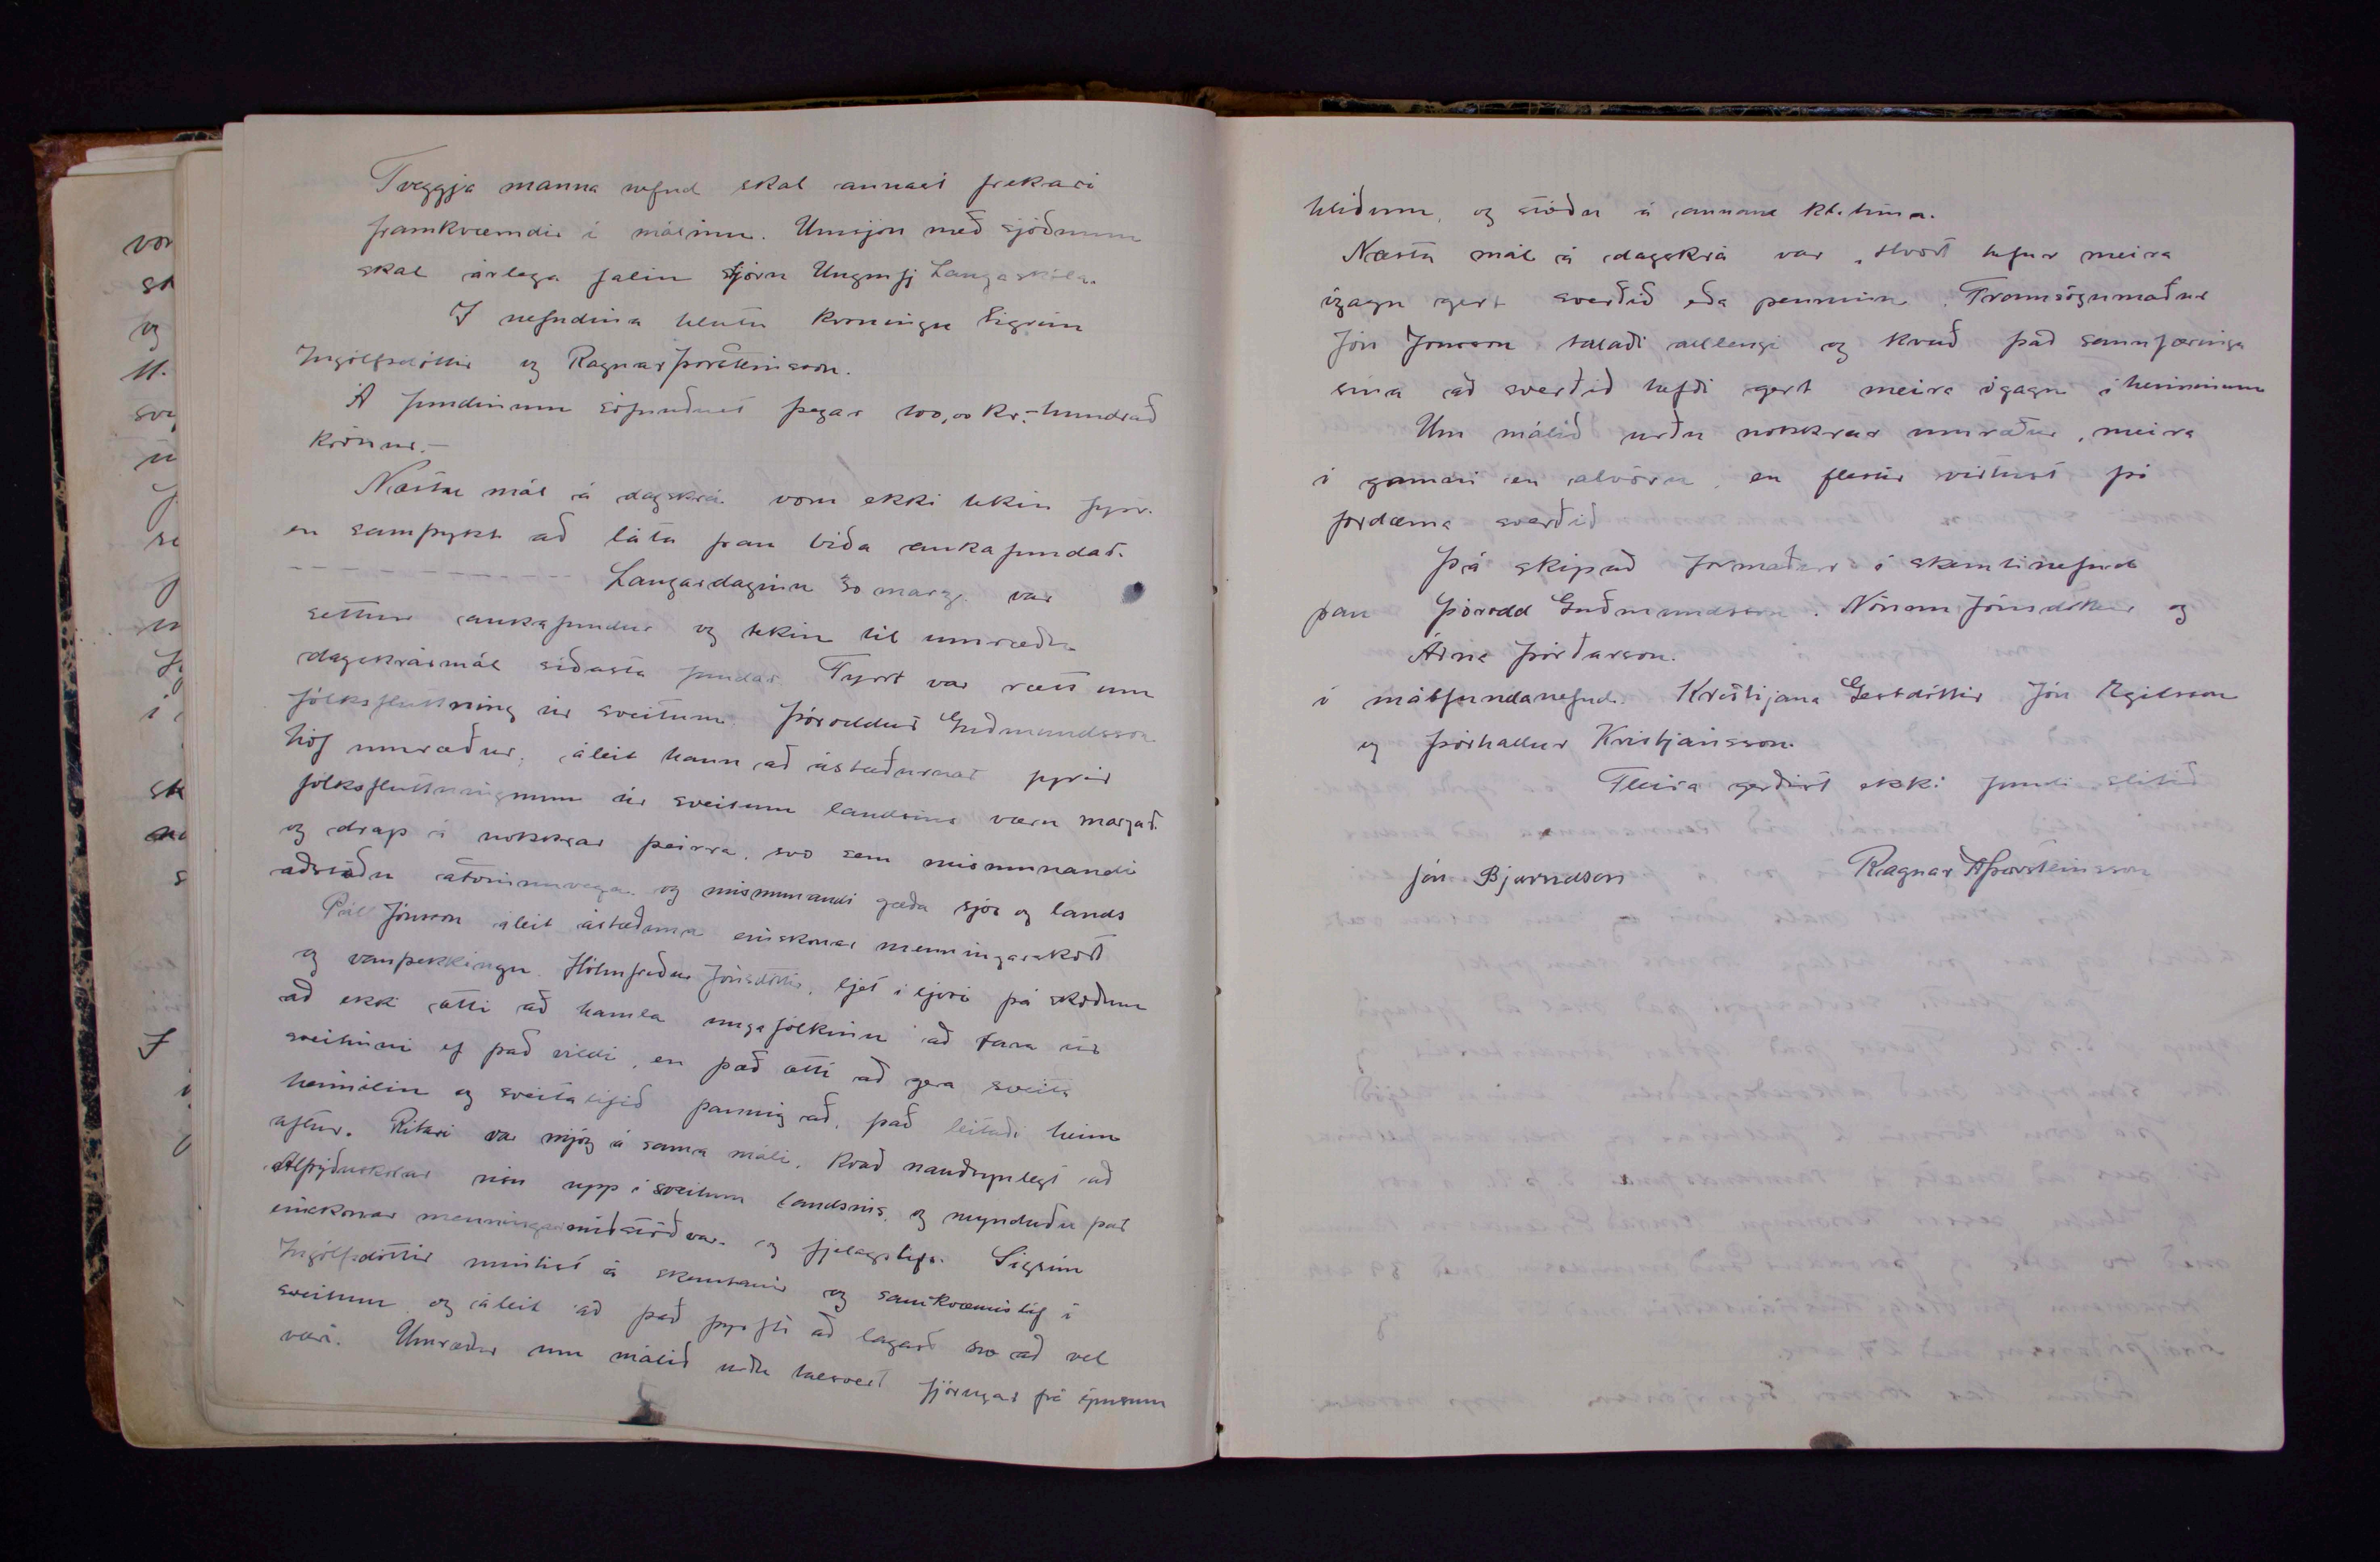 Tveggja manna nefnd skal annast frekari
framkvæmdir í málinu. Umsjón með sjóðnum
skal árlega falin stjórn Ungmfj Laugaskóla.
I nefndina hlutu kosningu Sigrún
Ingólfsdóttir og Ragnar Þorsteinsson.
Á fundinum söfnuðust þegar 100,00 kr. - hundrað
krónur. -
Næstu mál á dagskrá voru ekki tekin fyrir.
en samþykt að láta þau bíða aukafundar.
Laugardaginn 30 marz. var
settur aukafundur og tekin til umræðu
dagskrármál síðasta fundar Fyrst var rætt um
fólksfluttning úr sveitum. Þóroddur Guðmundsson
hóf umræður, áleit hann að ástæðurnar fyrir
fólksfluttningnum úr sveitum landsins væru margar.
og drap á nokkrar þeirra, svo sem mismunandi
aðstöðu atvinnuvega. og mismunandi gæða sjós og lands
Páll Jónsson áleit ástæðuna einskonar menningarskort
og vanþekkingu. Hólmfríður Jónsdóttir, ljet í ljósi þá skoðun
að ekki ætti að hamla unga fólkinu að fara úr
sveitinni ef það vildi, en það ætti að gera sveita
heimilin og sveitalífið þannig að, það leitaði heim
aftur. Ritari var mjög á sama máli. kvað nauðsynlegt að
Alþýðuskólar risu upp í sveitum landsins, og mynduðu þar
einskonar menningarmiðstöðvar og fjelagslífs. Sigrún
Ingólfsdóttir mintist á skemtanir og samkvæmislíf í
sveitum og áleit að það þyrfti að lagast svo að vel
væri. Umræður um málið urðu talsvert fjörugar frá ýmsum
hliðum, og stóðu á annan kl.tíma.
Næsta mál á dagskrá var „Hvort hefur meira
ógagn gert sverðið eða penninn. Framsögumaður
Jón Jónsson talaði allengi og kvað það sannfæringu
sína að sverðið hefði gert meira ógagn í heiminum
Um málið urðu nokkrar umræður, meira
í gamni en alvöru, en flestir virtust þó
fordæma sverðið
Þá skipað formaður í skemtinefnd
þau Þórodd Guðmundsson. Nönnu Jónsdóttur og
Árna Þórðarson.
í málfundanefnd. Kristjana Gestdóttir Jón Egilsson
og Þórhallur Kristjánsson.
Fleira gerðist ekki fundi slitið
Jón Bjarnason Ragnar A Þorsteinsson